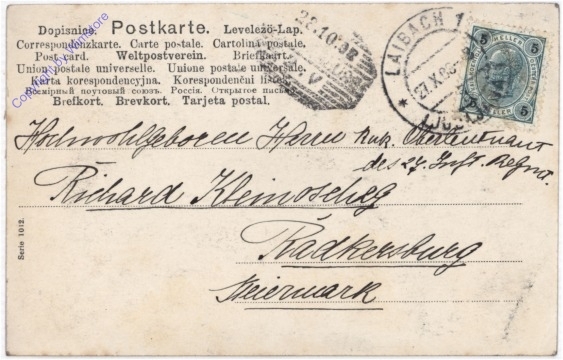 Dopisnice. Postkarte. Levelező-Lap.
Correspondenzkarte. Carte postale. Cartolina postale.
Post card. Weltpostverein. Briefkaart.
Union postale universelle. Unione postale universale.
Karta korespondencyjna. Korespondenční lístek.
Всемірный почтовый союзъ. Россія. Открытое письмо.
Brefkort. Brevkort. Tarjeta postal.
Copyright by Mimstore
28.10.98
V
LAIBACH 1
27.X.98
5 HELLER 5
5 5
Hochwohlgeboren Herrn Oberleutnant
des 27. Inft. Regmt.
Richard Kleinoscheg
Radkersburg
Steiermark
Serie 1012.